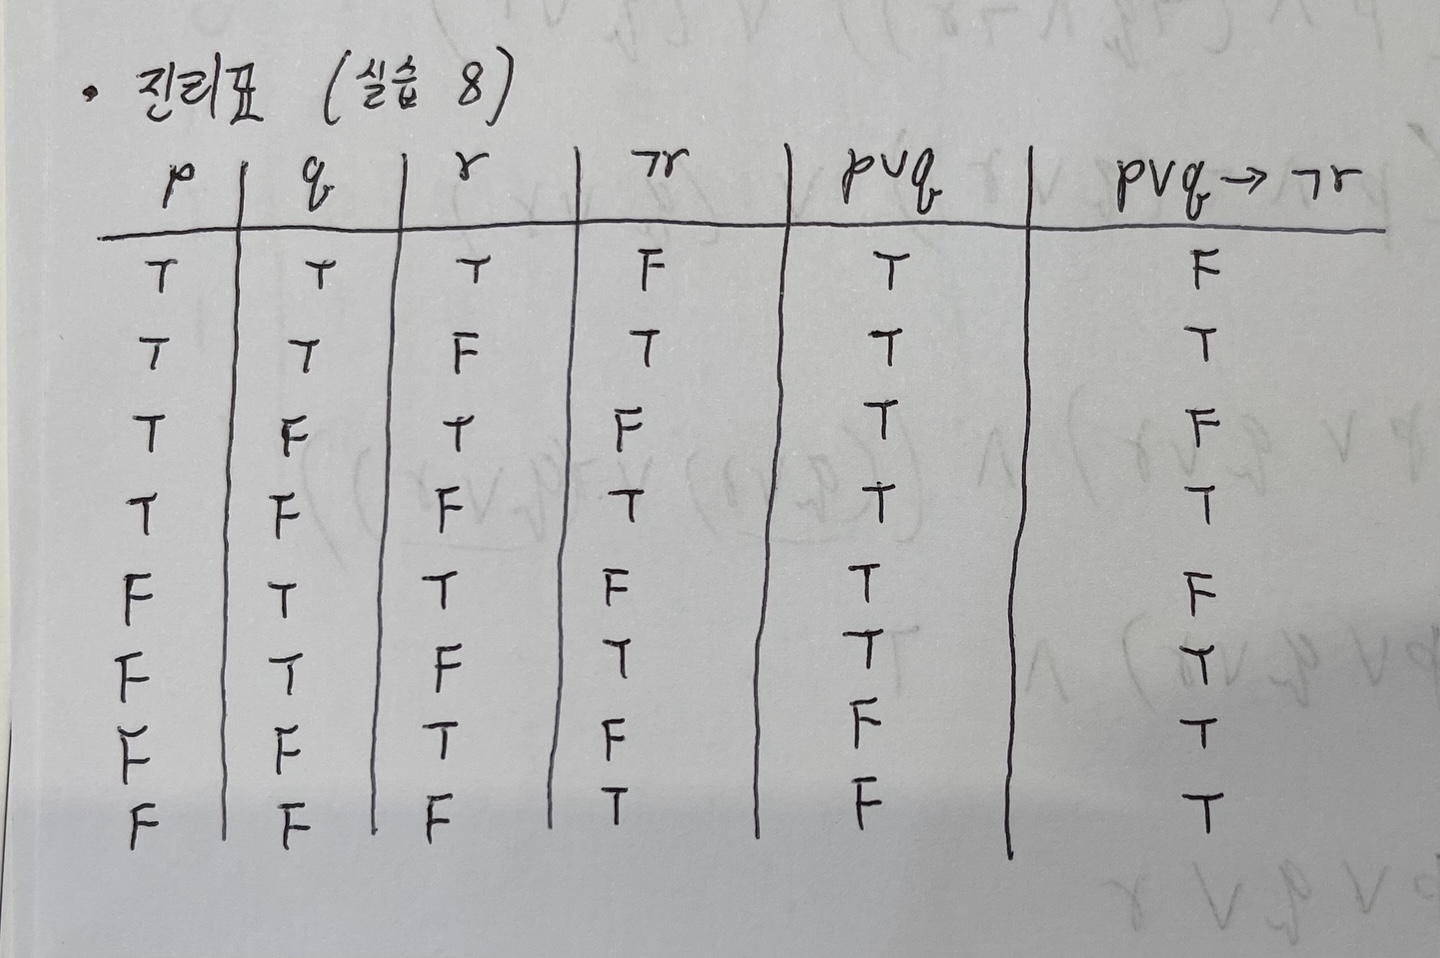 • 진리표 (실습 8)
p q r ¬r p∨q p∨q → ¬r
T T T F T F
T T F T T T
T F T F T F
T F F T T T
F T T F T F
F T F T T T
F F T F F T
F F F T F T